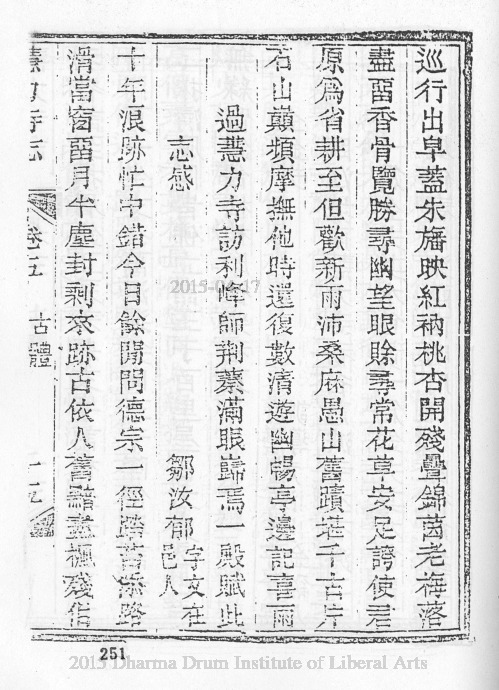 巡行出皁蓋朱旛映紅衲桃杏開殘疊錦茵老梅落
盡畱香骨覽勝尋幽望眼賒尋常花草安足誇使君
原爲省耕至但歡新雨沛桑麻愚山舊蹟堪千古片
石山巔頻摩撫他時還復數淸遊幽暢亭邊記喜雨
過慧力寺訪利峰師荆蓁滿眼巋焉一殿賦此
志感
鄒汝郁字文在邑人
十年浪跡忙中錯今日餘閒問德宗一徑踏苔添路
滑當窗畱月半塵封剩來跡古依人舊黯盡楓殘倍
慧力寺志
卷五 古體
251
2015-04-17
2015 Dharma Drum Institute of Liberal Arts